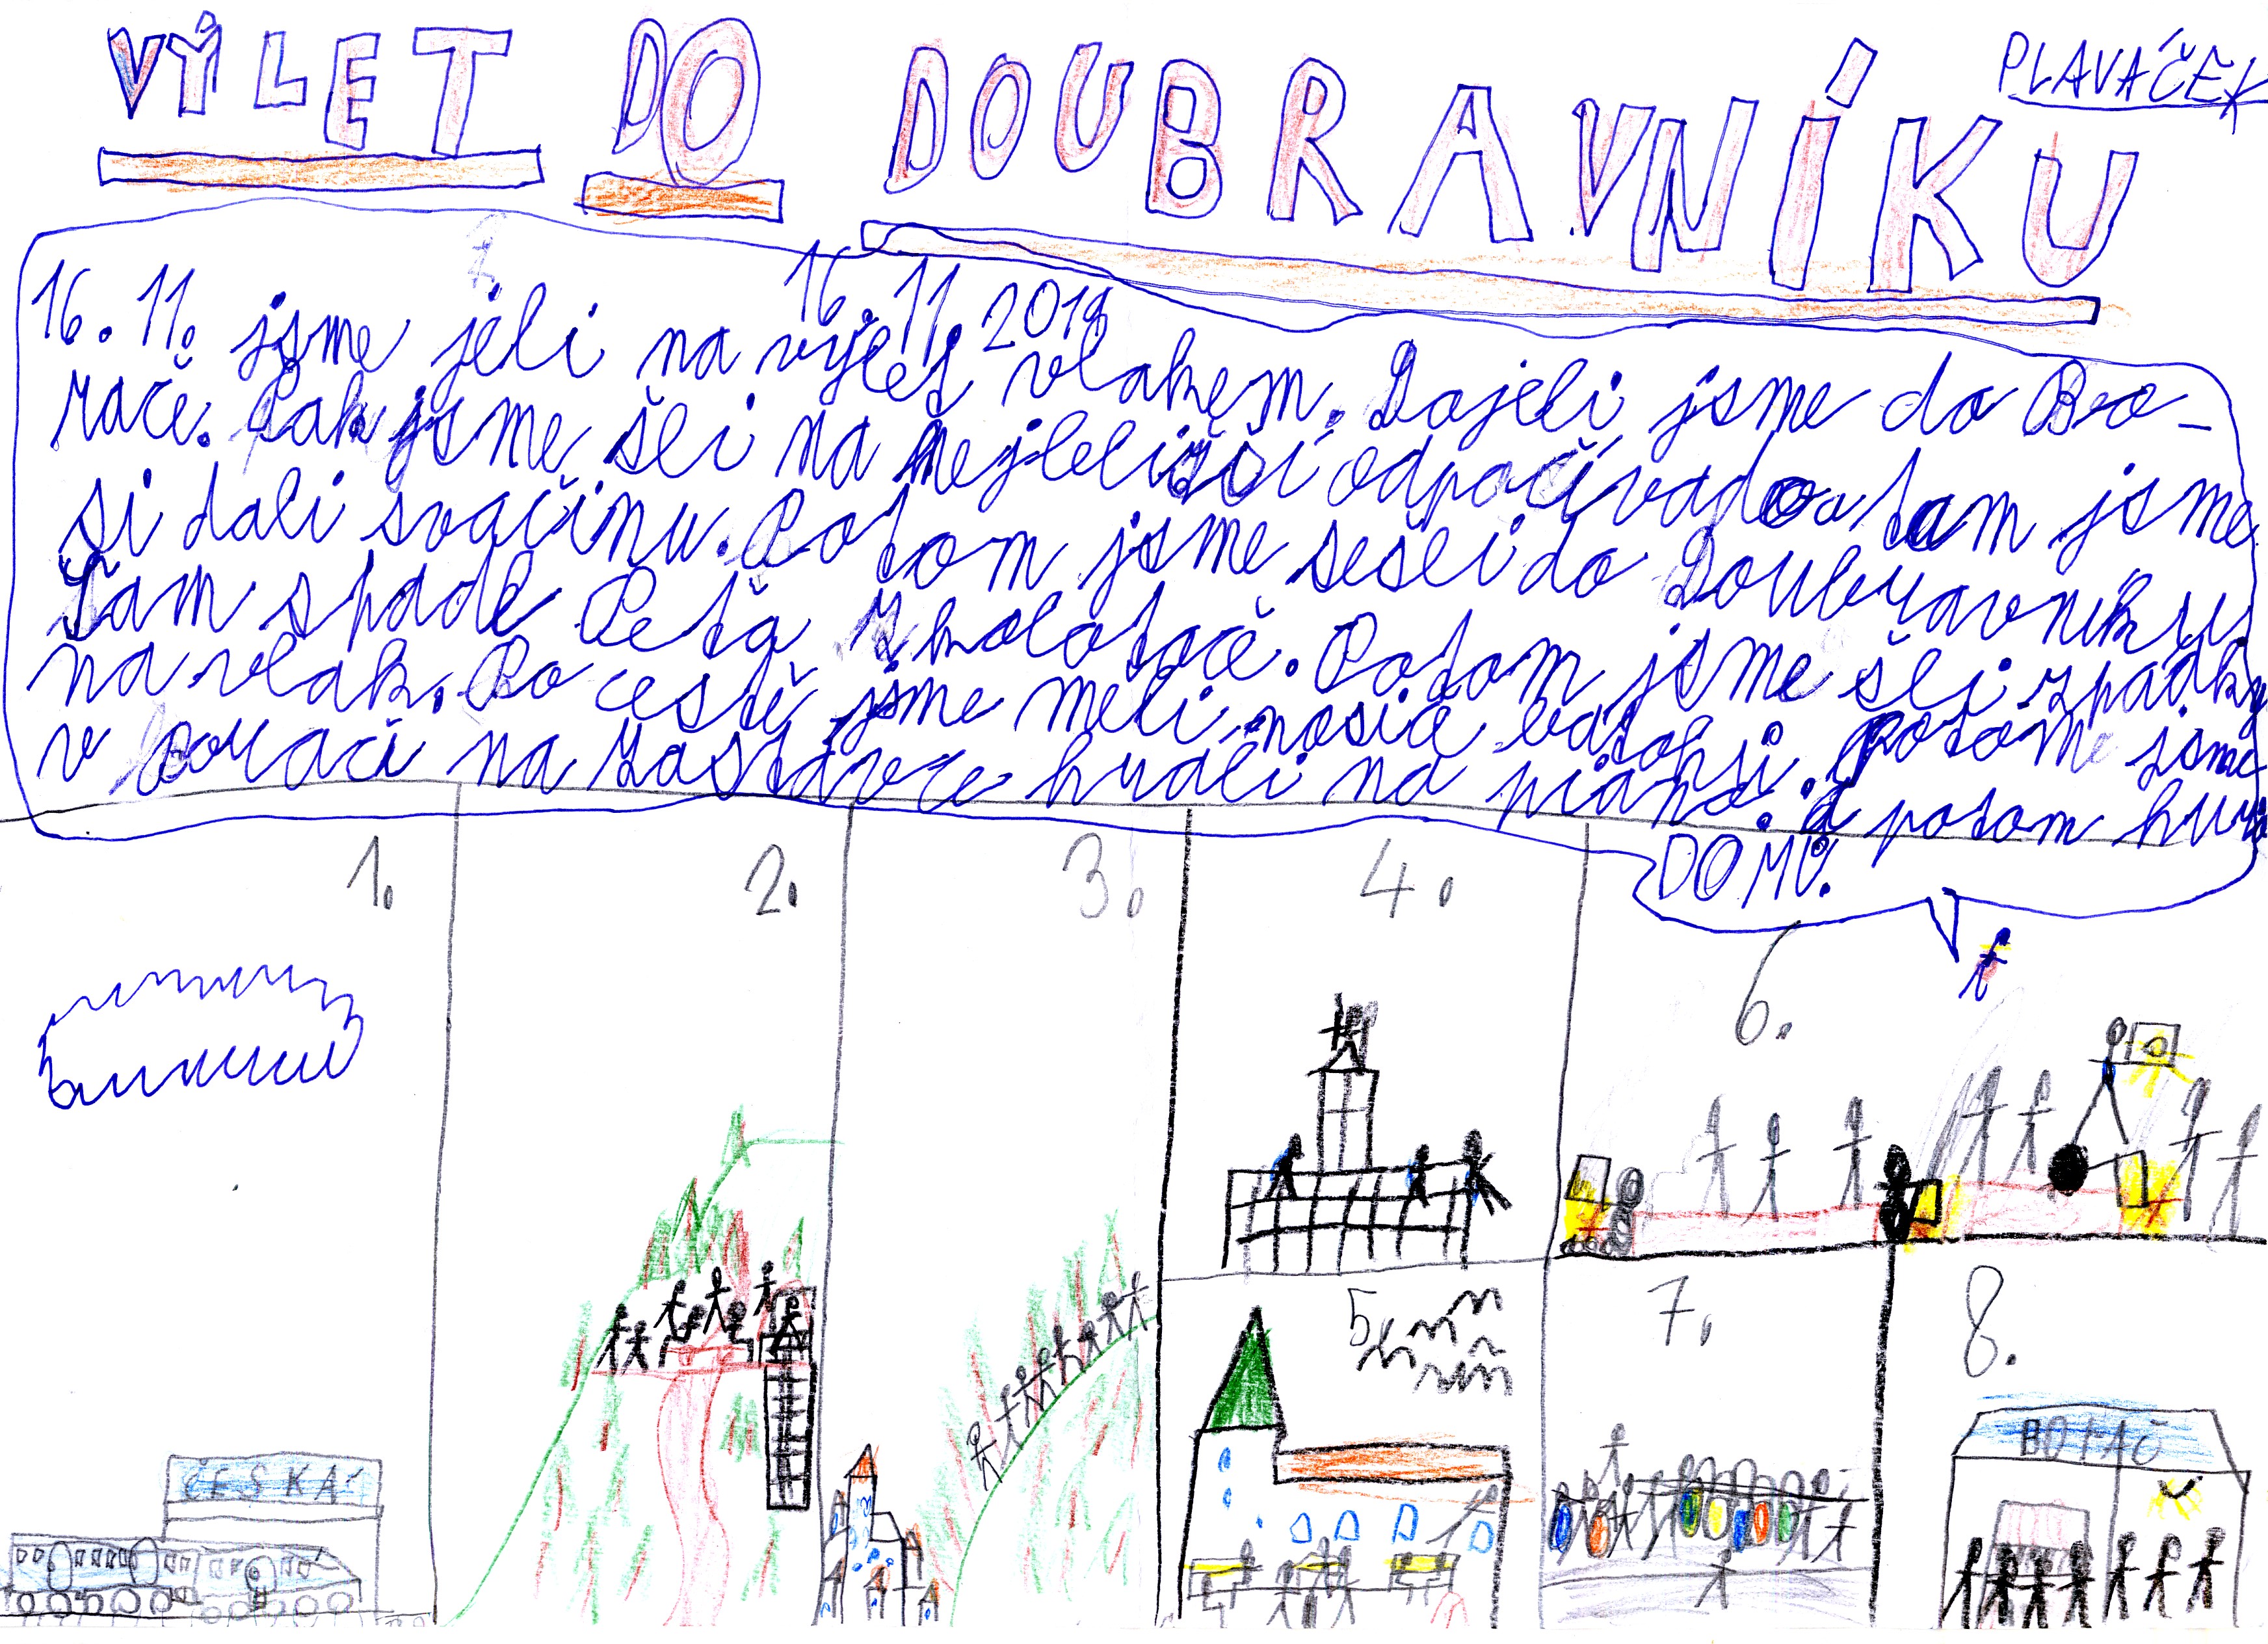 VÝLET DO DOUBRAVNÍKU
PLAVÁČEK
16.11.2019
16.11. jsme jeli na výlet vlakem. Dojeli jsme do Bo-
rače. Pak jsme šli na nejbližší odpočívadlo a tam jsme
si dali svačinu. Potom jsme sešli do Doubravníku
Tam spadl Péťa z kolotoče. Potom jsme šli zpádky
na vlak. Po cestě jsme meli nosič batohů. Potom jsme
v borači na zastávce hráli na piáno. a potom hurá
DOMŮ.
1.
2.
3.
4.
6.
5.
7.
8.
ČESKÁ
BORAČ